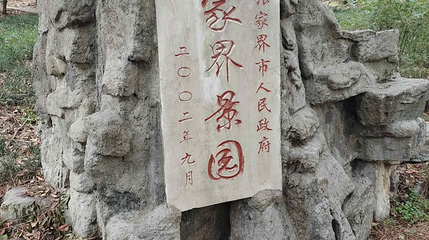 张家界市人民政府
家界景园
二〇〇二年九月